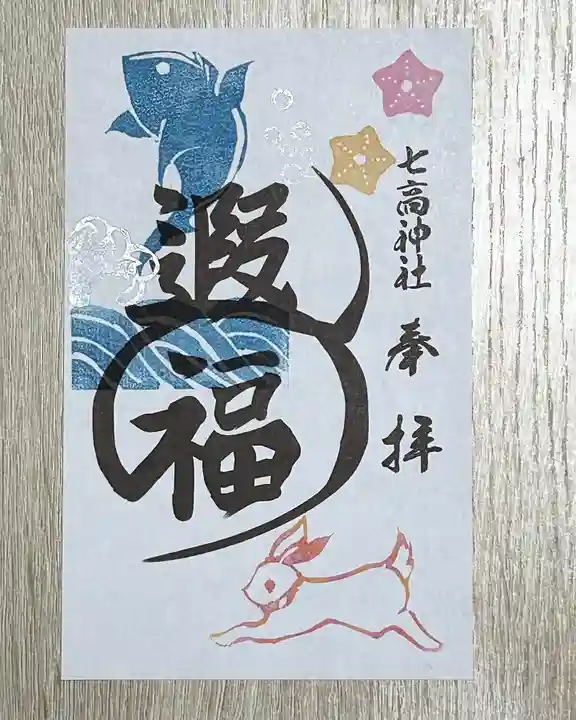 七高神社
奉拝
遐福